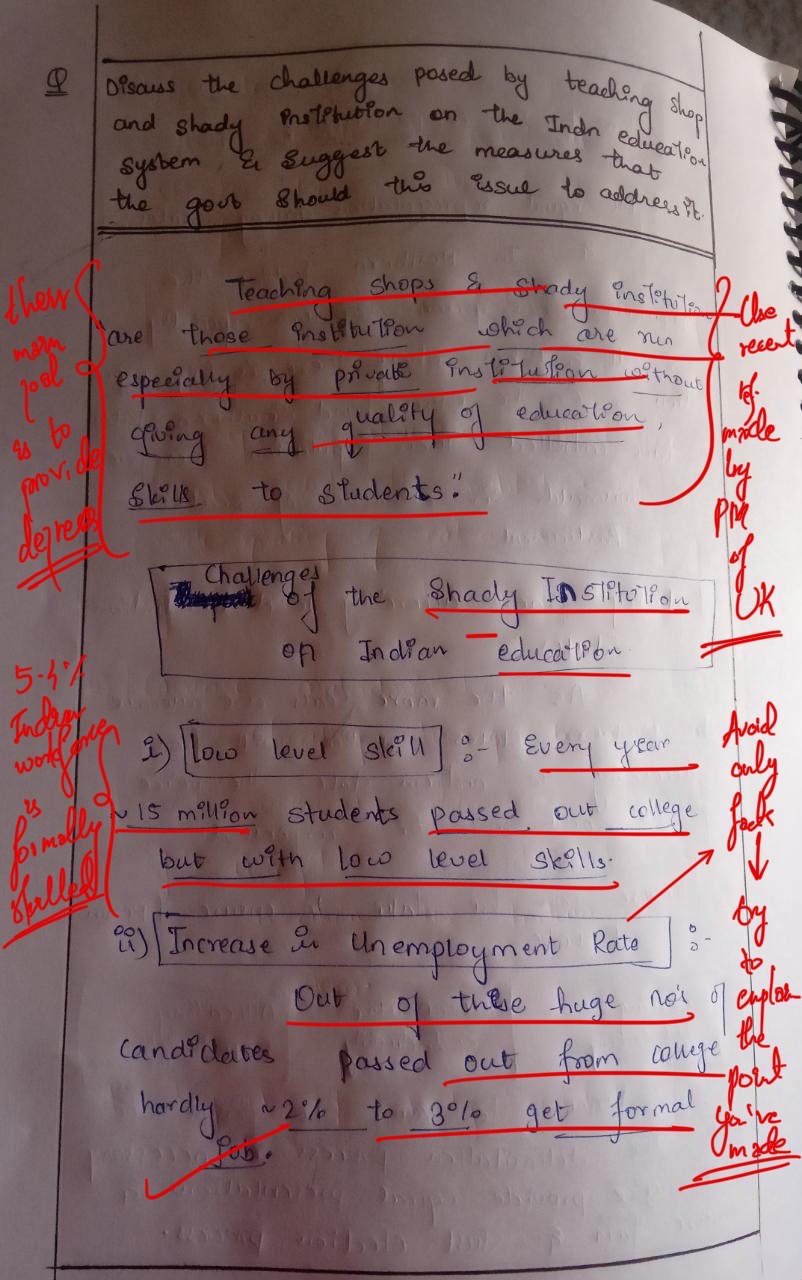 Q
Discuss the challenges posed by teaching shop
and shady institution on the Indn education
system & suggest the measures that
the govt should this issue to address it.
Teaching shops & shady institution
are those institution which are run
especially by private institution without
giving any quality of education,
skills to students."
their
main
goal
is to
provide
degrees
Use
recent
ef.
made
by
PM
of
UK
Challenges
of the Shady Institution
on Indian education
i) Low level skill :- Every year
~15 million students passed out college
but with low level skills.
5.4%
Indian
workforce
is
formally
skilled
ii) Increase in Unemployment Rate :-
Out of these huge no's of
candidates passed out from college
hardly ~2% to 3% get formal
job.
Avoid
only
fact
try
to
explain
the
point
you've
made